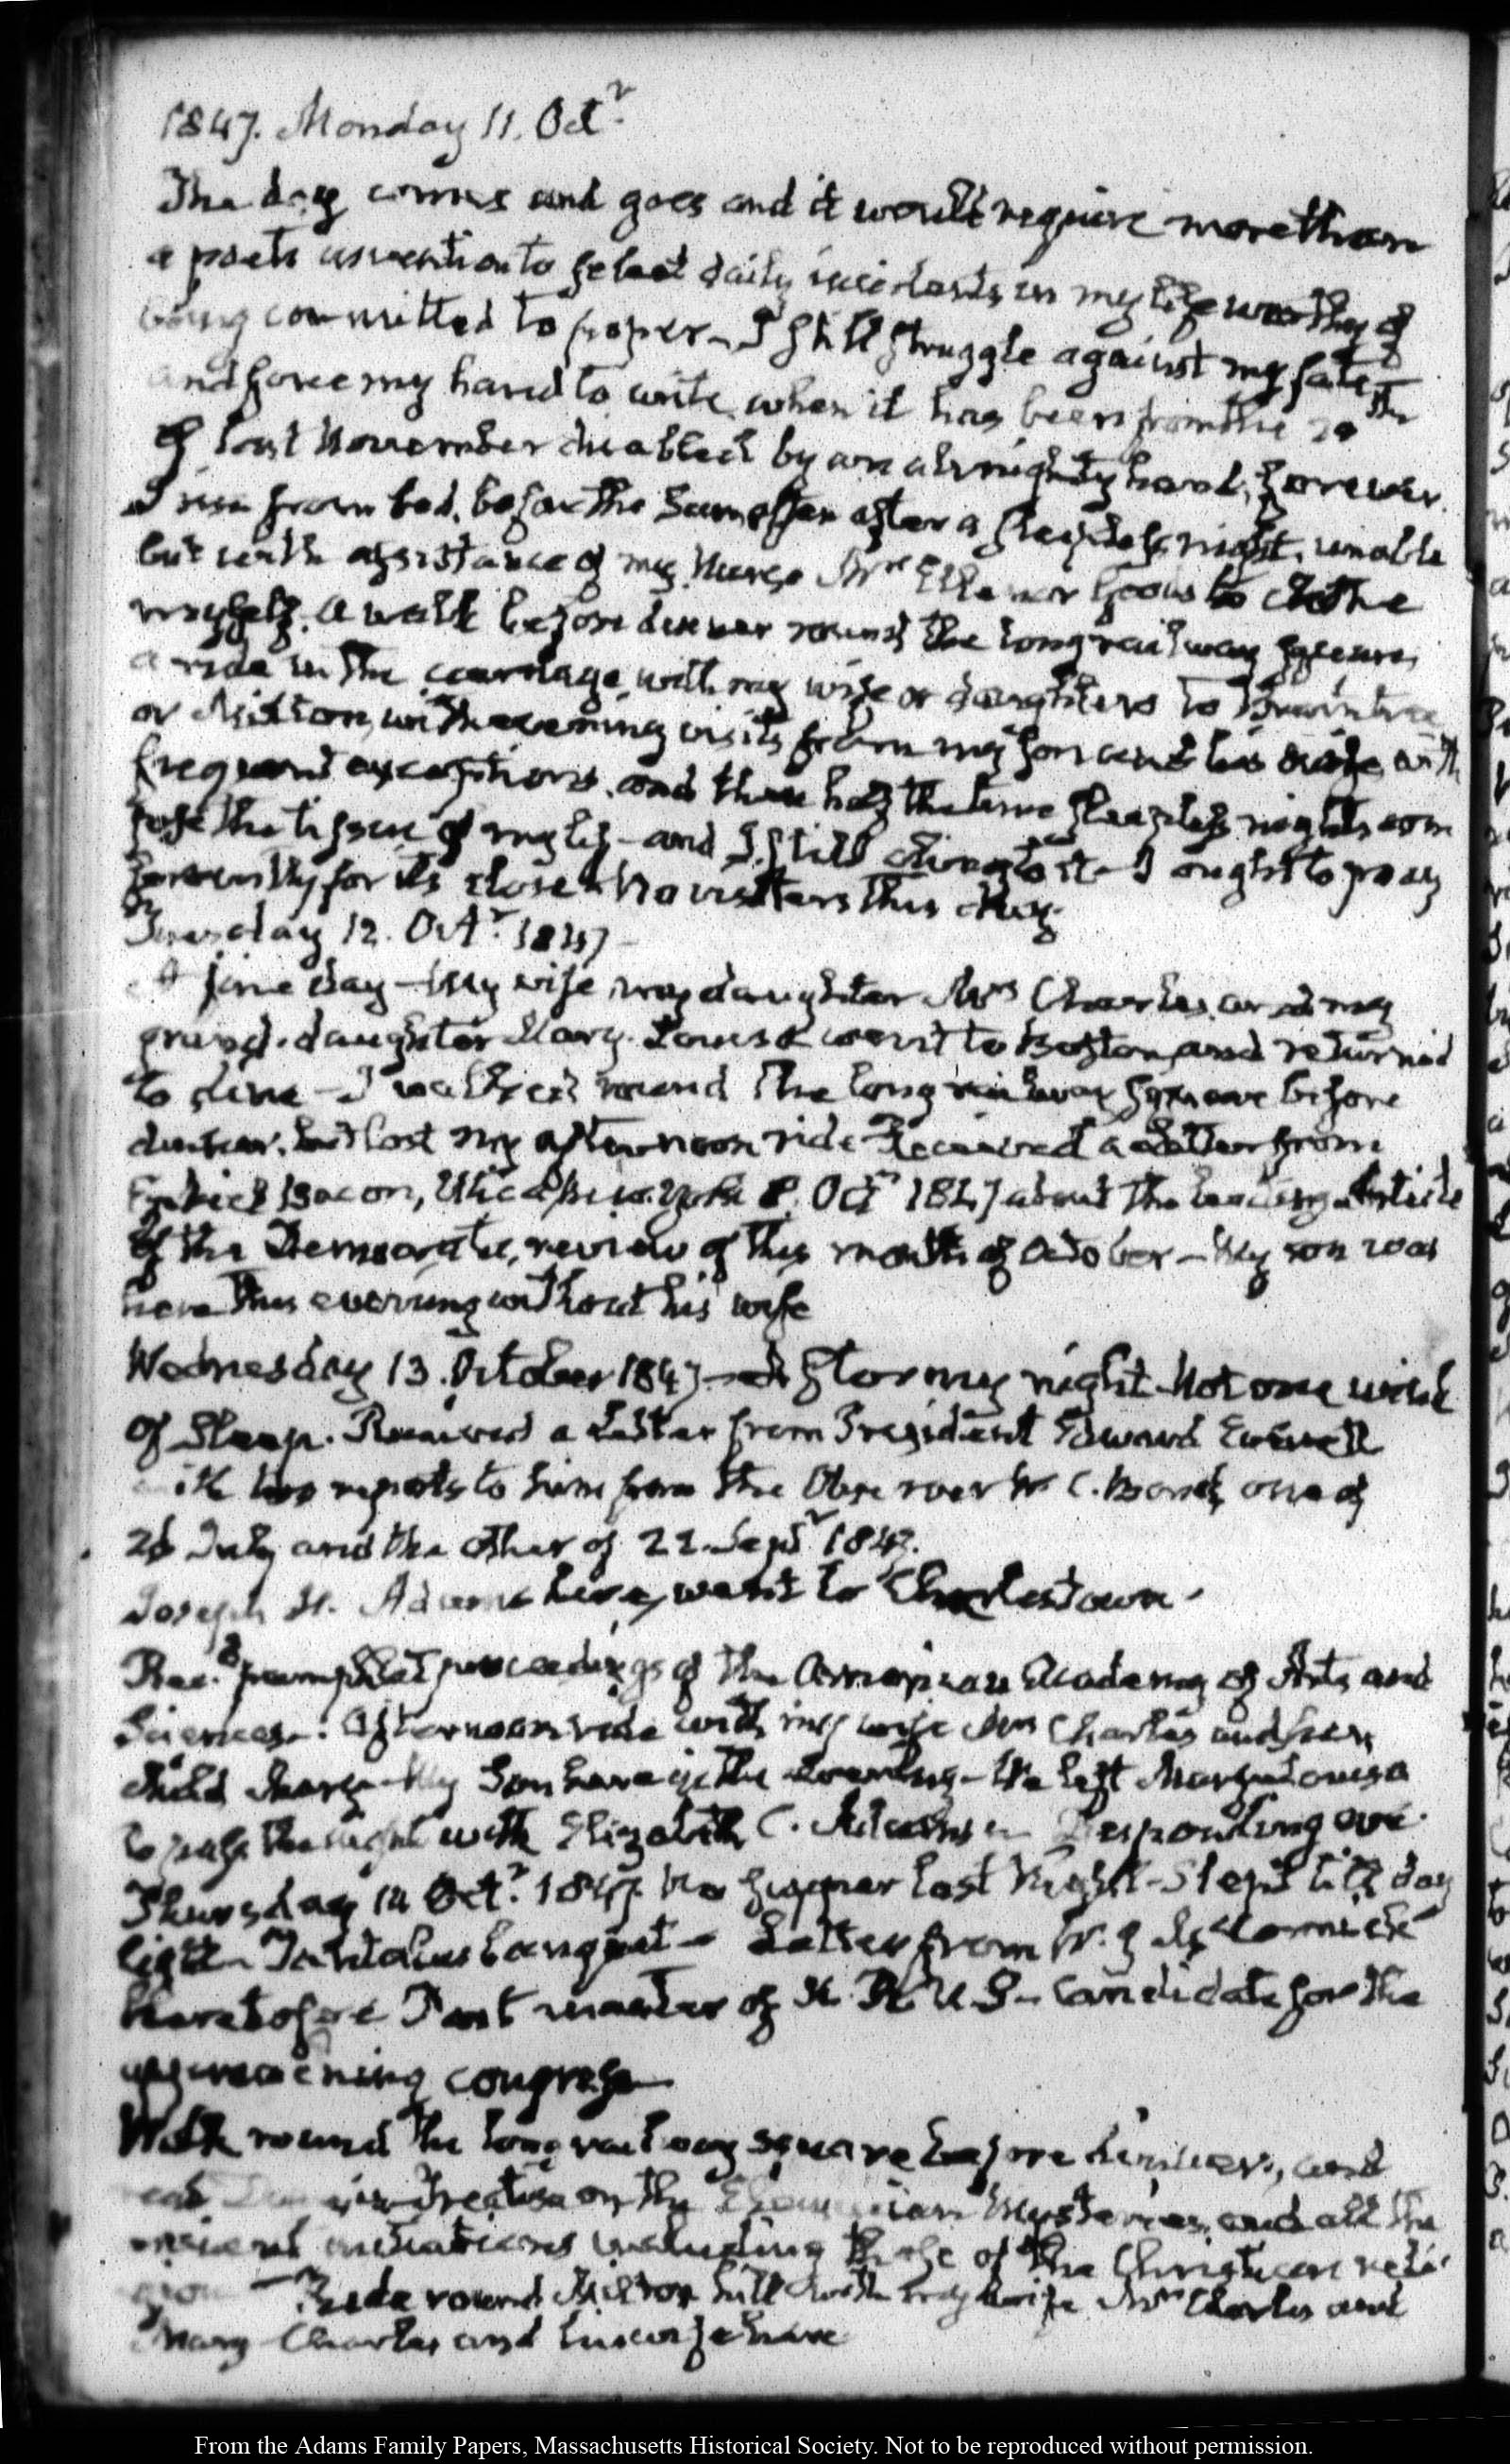 1847. Monday 11. Octr.
The day comes and goes and it would require more than
a poets invention to select daily incidents in my life worthy of
being committed to paper—I still struggle against my fate
and force my hand to write when it has been from the 20th
of last November disabled by an almighty hand, forever.
I rise from bed, before the Sun often after a sleepless night, unable
but with assistance of my Nurse Mrs to clothe
myself. a walk before dinner round the long railway square,
a ride in the carriage with my wife or daughters to Braintree
or Milton, with evening visits from my son and his wife, with
frequent exceptions, and three half the time sleepless nights com
pose the tissue of my life—and I still cling to it—I ought to pray
fervently for its close—No visitors this day.
Tuesday 12. Octr. 1847—
A fine day—My wife, my daughter Mrs Charles, and my
grand-daughter Mary Louisa went to Boston, and returned
to dine—I walked round the long railway square before
dinner, but lost my afternoon ride—Received a letter from
Ezekiel Bacon, Utica, New York 8. Octr 1847 about the leading Article
of the Democratic review of this month of October—My son was
here this evening without his wife
Wednesday 13. October 1847—A stormy night—Not one wink
of sleep. Received a letter from President Edward Everett
with two reports to him from the Observer W. C. Bond, one of
July and the other of 22. Septr 1847.
Joseph H. Adams here, went to Charlestown.
Recd. pamphlet proceedings of the American Academy of Arts and
Sciences. Afternoon ride with my wife Mrs Charles and her
child Mary—My Son here in the evening—We left Mary Louisa
to pass the night with Elizabeth C. Adams
Thursday 14 Octr. 1847. No supper last Night—Slept till day
light—Tantalus banquet—Letter from McCormick
heretofore Post master of H. R. U.S. Candidate for the
approaching congress—
Walk round the long railway square before dinner, and
Treatise on the Mysteries, and all the
ancient initiations including those of the Christian reli-
gion—Ride round Milton hill with my wife Mrs Charles and
Mary—Charles and his wife here
From the Adams Family Papers, Massachusetts Historical Society. Not to be reproduced without permission.